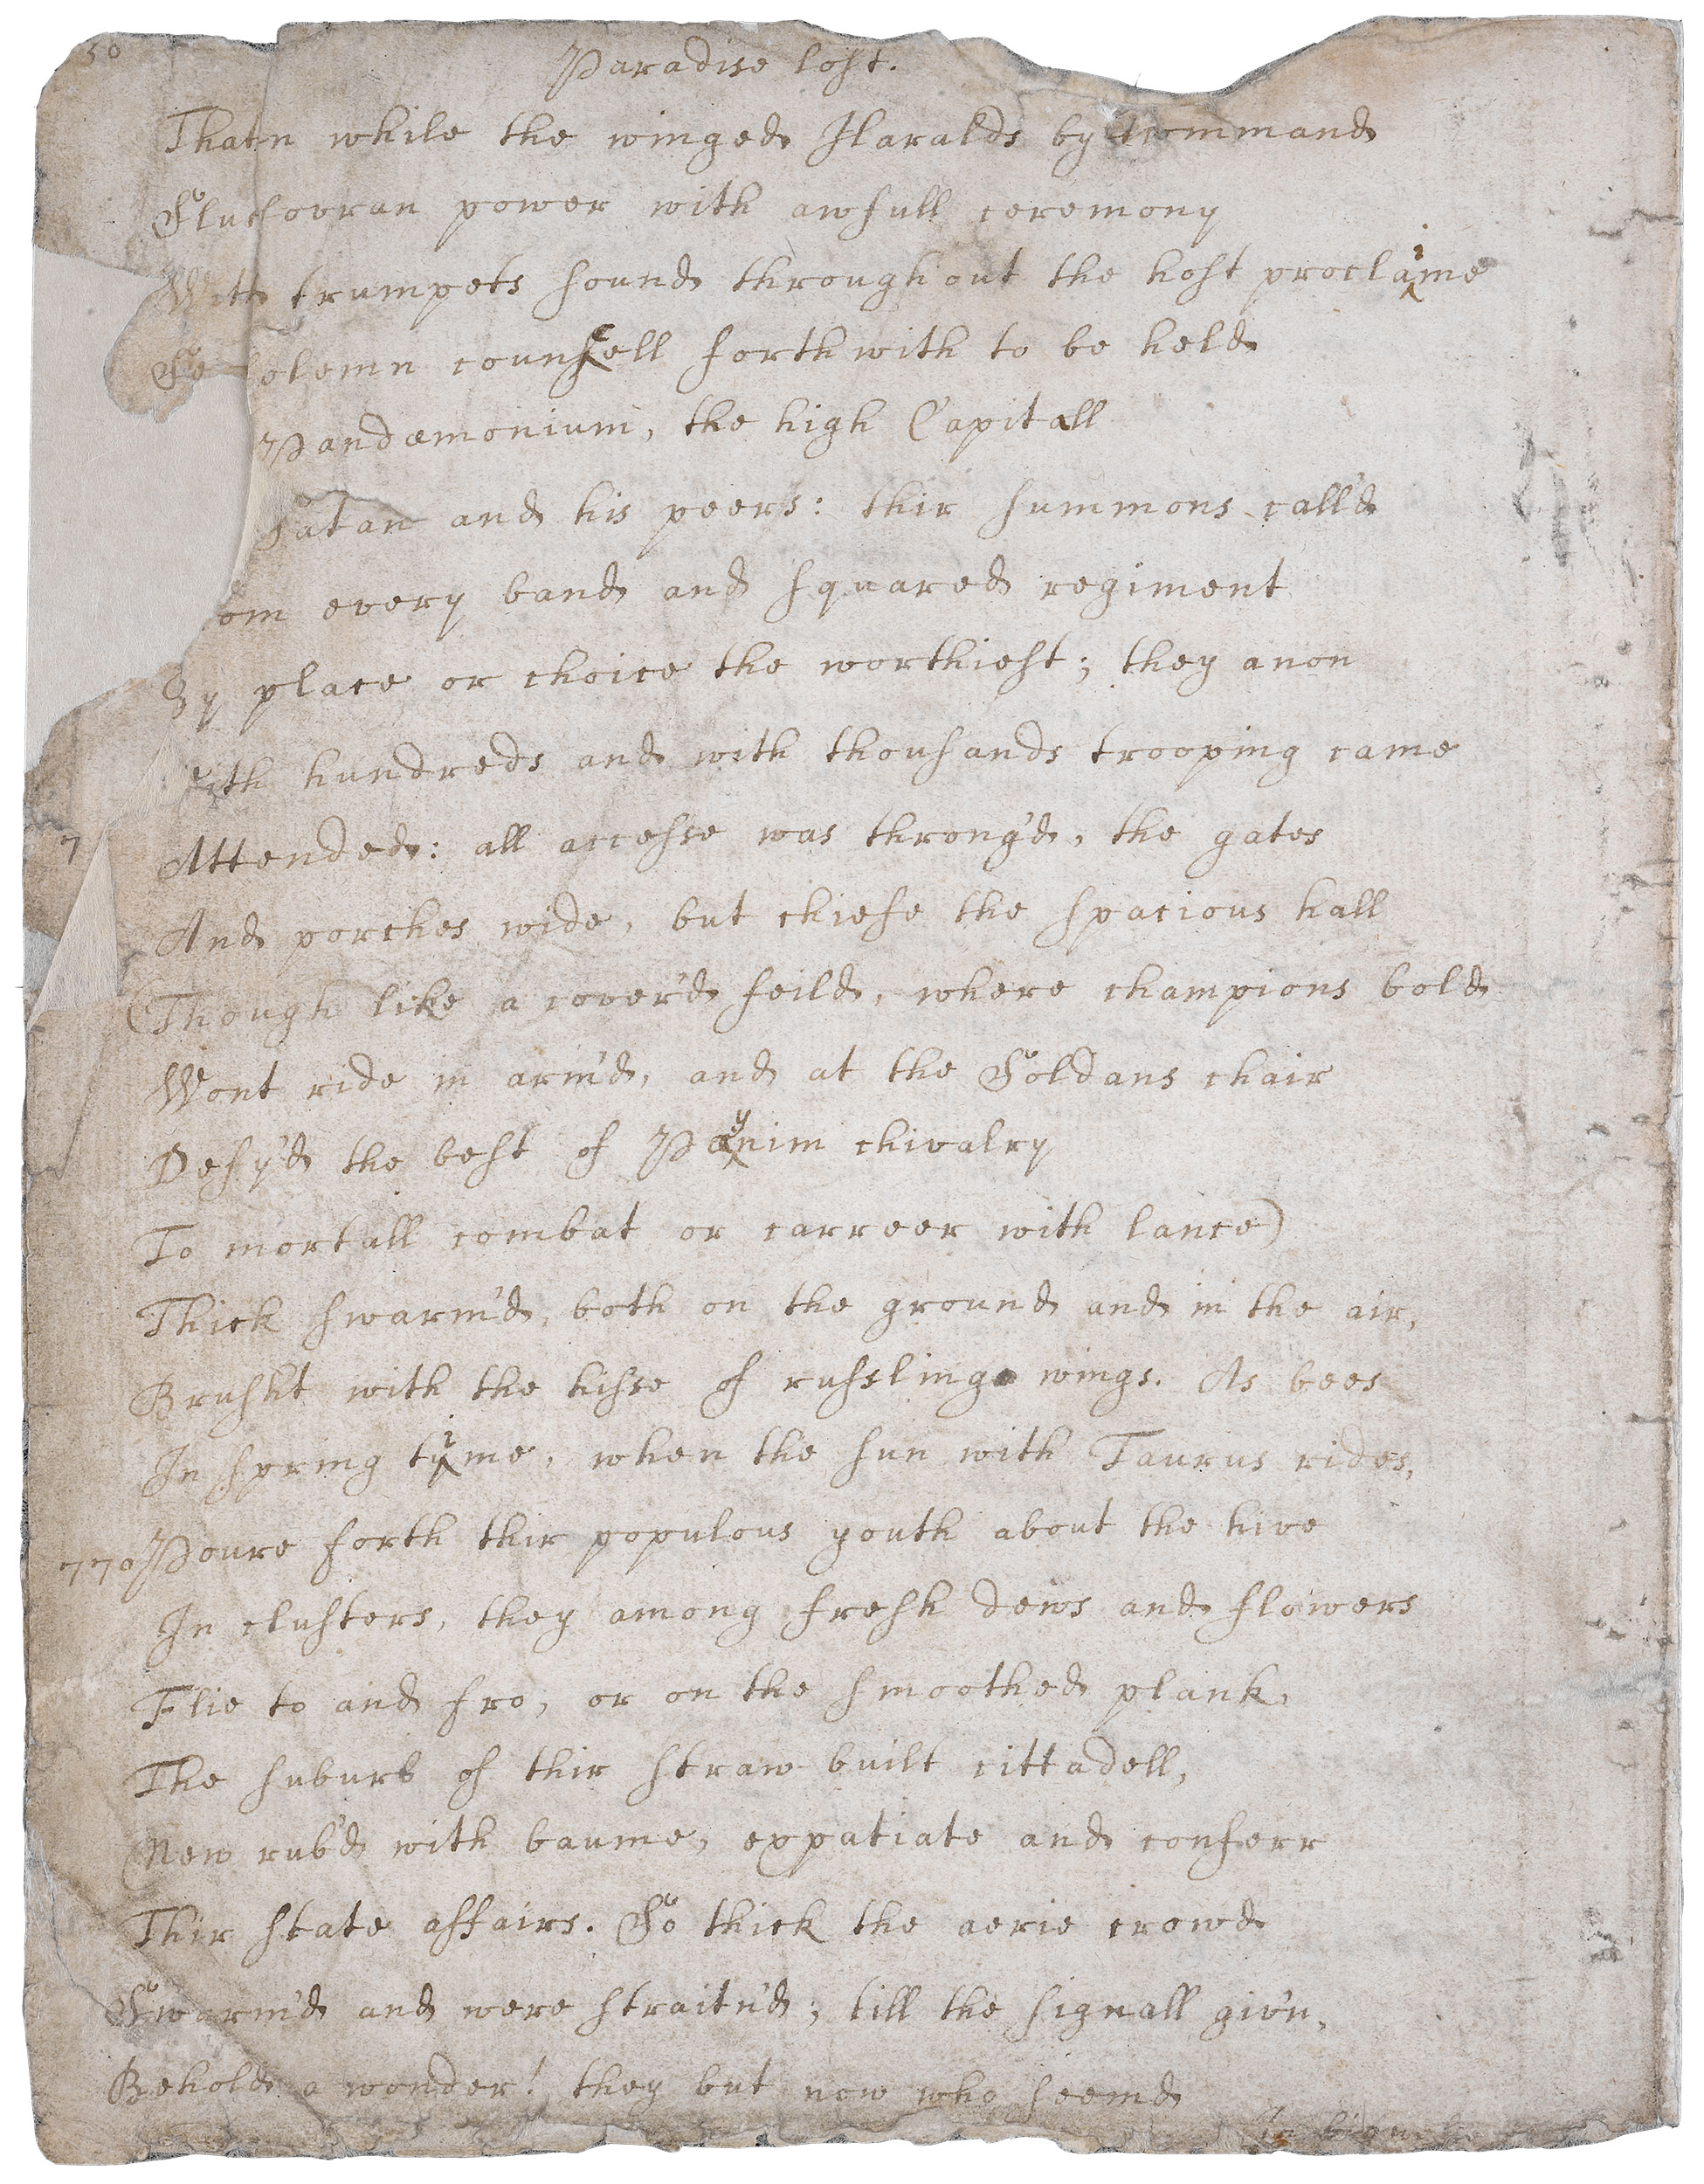 30
Paradise lost.
while the winged Haralds by command
power with awfull ceremony
With trumpets sound throughout the host proclaime
solemn councell forthwith to be held
Pandæmonium, the high Capitall
Satan and his peers: thir summons call'd
om every band and squared regiment
By place or choice the worthiest; they anon
ith hundreds and with thousands trooping came
7 Attended: all accesse was throng'd, the gates
And porches wide, but chiefe the spacious hall
(Though like a cover'd feild, where champions bold
Wont ride in arm'd, and at the Soldans chair
Defy'd the best of Paynim chivalry
To mortall combat or carreer with lance)
Thick swarm'd, both on the ground and in the air,
Brusht with the hisse of russling wings. As bees
In spring time, when the sun with Taurus rides,
770 Poure forth thir populous youth about the hive
In clusters, they among fresh dews and flowers
Flie to and fro, or on the smoothed plank,
The suburb of thir straw-built cittadell,
New rub'd with baume, expatiate and conferr
Thir state affairs. So thick the aerie crowd
Swarm'd and were straitn'd; till the signall giv'n,
Behold a wonder! they but now who seemd
In